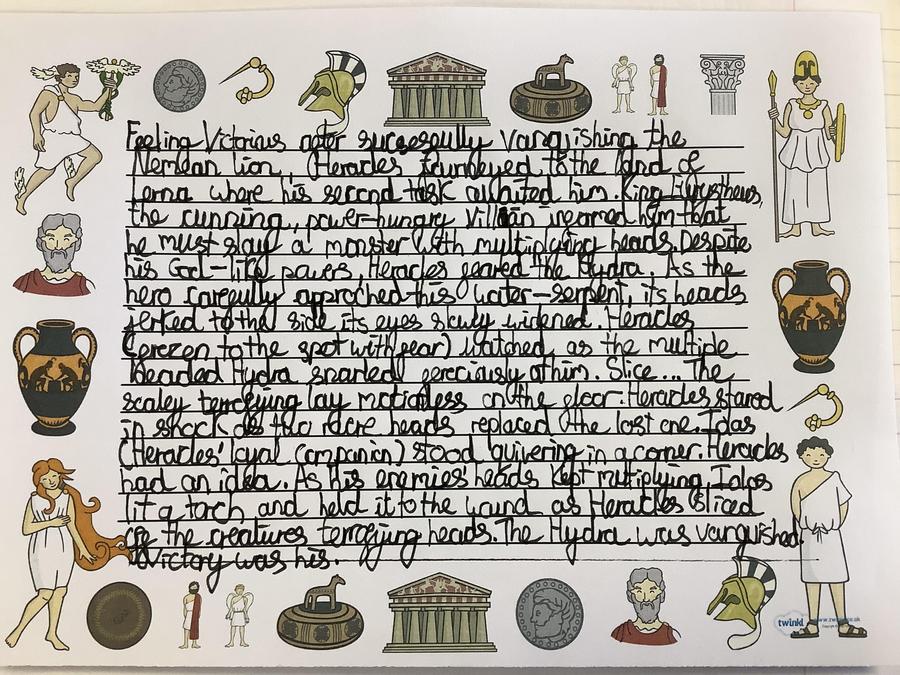 Feeling Victorius after succesfully vanquishing the
Nemean lion, Heracles journeyed to the land of
Lerna where his second task awaited him. King Eurystheus,
the cunning, power-hungry villain informed him that
he must slay a monster with multiplying heads. Despite
his God-like powers, Heracles feared the Hydra. As the
hero carefully approched this water-serpent, its heads
jerked to the side its eyes slowly widened. Heracles
(frozen to the spot with fear) watched, as the multiple
headed Hydra snarled ferociously at him. Slice... The
scaley terrifying lay motionless on the floor. Heracles stared
in shock as two more heads replaced the lost one. Iolas
(Heracles' loyal companion) stood quivering in a corner. Heracles
had an idea. As his enemies' heads kept multiplying, Iolas
lit a torch and held it to the wound as Heracles sliced
off the creatures terrifying heads. The Hydra was vanquished.
Victory was his.
twinkl